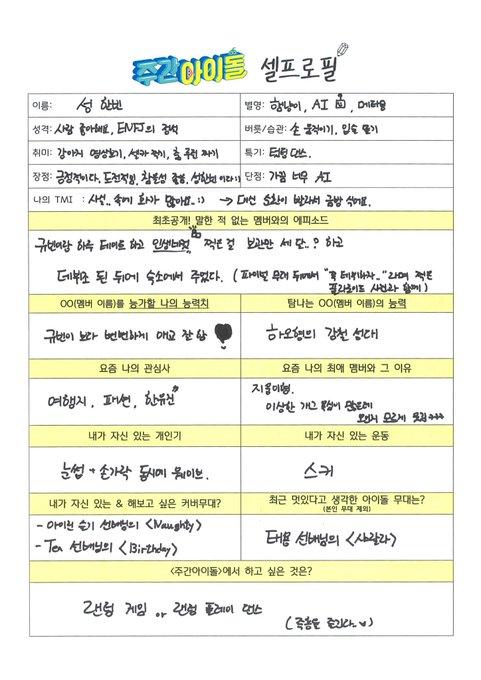 주간아이돌 셀프로필
이름: 성 한빈
별명: 햄냥이, AI 봇, 메타몽
성격: 사람 좋아해요, ENFJ의 정석
버릇/습관: 손 움직이기, 입술 뜯기
취미: 강아지 영상보기, 셀카 찍기, 춤 루틴 짜기
특기: 터팅 댄스.
장점: 긍정적이다, 도전적임, 참을성 좋음, 성한빈 이라니
단점: 가끔 너무 AI
나의 TMI : 사실.. 속에 화가 많아요.. :) → 대신 순환이 빨라서 금방 식어요.
최초공개! 말한 적 없는 멤버와의 에피소드
규빈이랑 하루 데이트 하고 인생네컷 찍은 걸 보관만 세 달..? 하고
데뷔조 된 뒤에 숙소에서 주었다. (파이널 무대 뒤에서 "꼭 데뷔하자.." 라며 찍은
폴라로이드 사진과 함께)
OO(멤버 이름)를 능가할 나의 능력치
탐나는 OO(멤버 이름)의 능력
규빈이 보다 뻔뻔하게 애교 잘 함
하오형의 감천 성대
요즘 나의 관심사
요즘 나의 최애 멤버와 그 이유
여행지, 패션, 한유진
지웅이형.
이상한 개그 욕심이 많은데
모르게 웃김 ㅋㅋㅋ
내가 자신 있는 개인기
내가 자신 있는 운동
눈썹 + 손가락 동시에 웨이브.
스키
내가 자신 있는 & 해보고 싶은 커버무대?
최근 멋있다고 생각한 아이돌 무대는?
(본인 무대 제외)
- 아이린 슬기 선배님의 <Naughty>
- Ten 선배님의 <Birthday>
태용 선배님의 <샤랄라>
<주간아이돌>에서 하고 싶은 것은?
랜덤 게임 or 랜덤 플레이 댄스
(즉흥을 즐긴다..v)